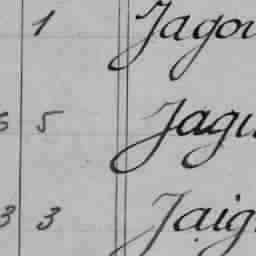 1 Jagou
5 Jagu
3 3 Jaig